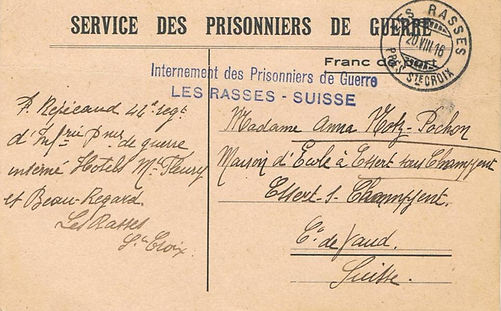 SERVICE DES PRISONNIERS DE GUERRE
Franc de port
LES RASSES
20.VIII.16
PRÈS STE CROIX
Internement des Prisonniers de Guerre
LES RASSES - SUISSE
42e regt
d'Infrie de guerre
interné Hotels Mt Fleury
et Beau-Regard
Les Rasses
Ste Croix
Madame Anna Pochon
Maison d'Ecole à Essert sous Champvent
Essert-s-Champvent.
Ct de Vaud.
Suisse.